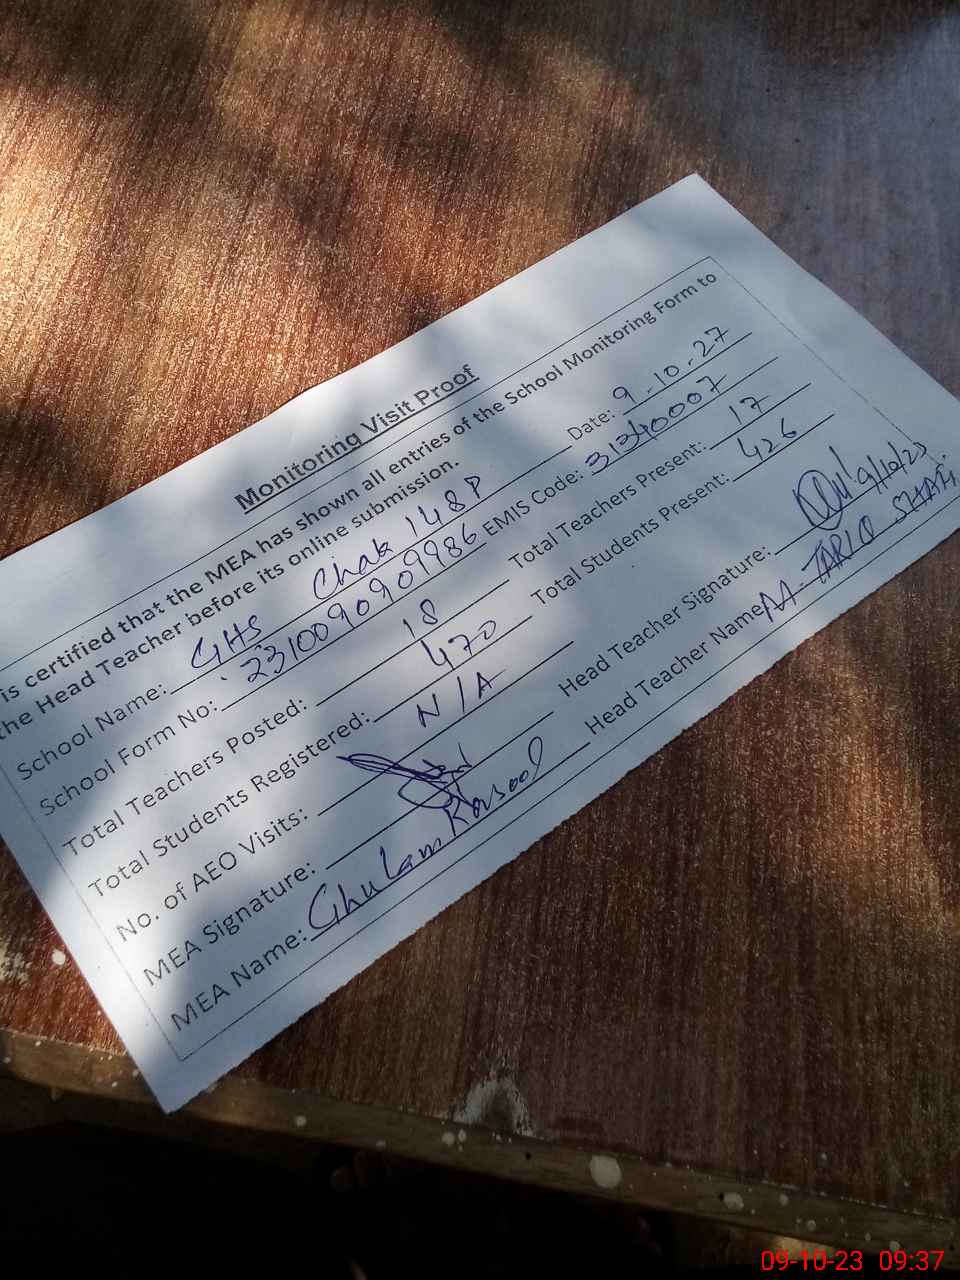 Monitoring Visit Proof
is certified that the MEA has shown all entries of the School Monitoring Form to
the Head Teacher before its online submission.
School Name: GHS Chak 148P Date: 9-10-27
School Form No: 2310090909986 EMIS Code: 31340007
Total Teachers Posted: 18 Total Teachers Present: 17
Total Students Registered: 470 Total Students Present: 426
No. of AEO Visits: N/A
MEA Signature: Head Teacher Signature: 9/10/23
MEA Name: Ghulam Rasool Head Teacher Name M. TARIQ SHAFI
09-10-23 09:37